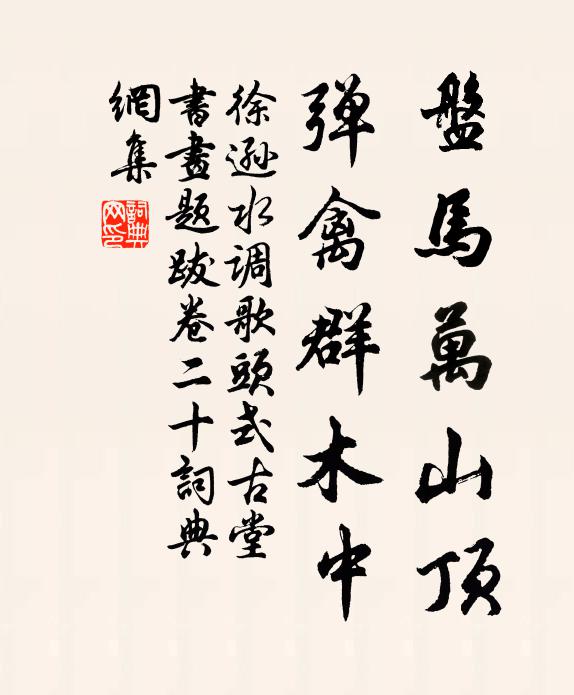 盤馬萬山頂
弹禽群木中
徐逊水调歌頭式古堂
書畫題跋卷二十詞典
網集
詞典網印